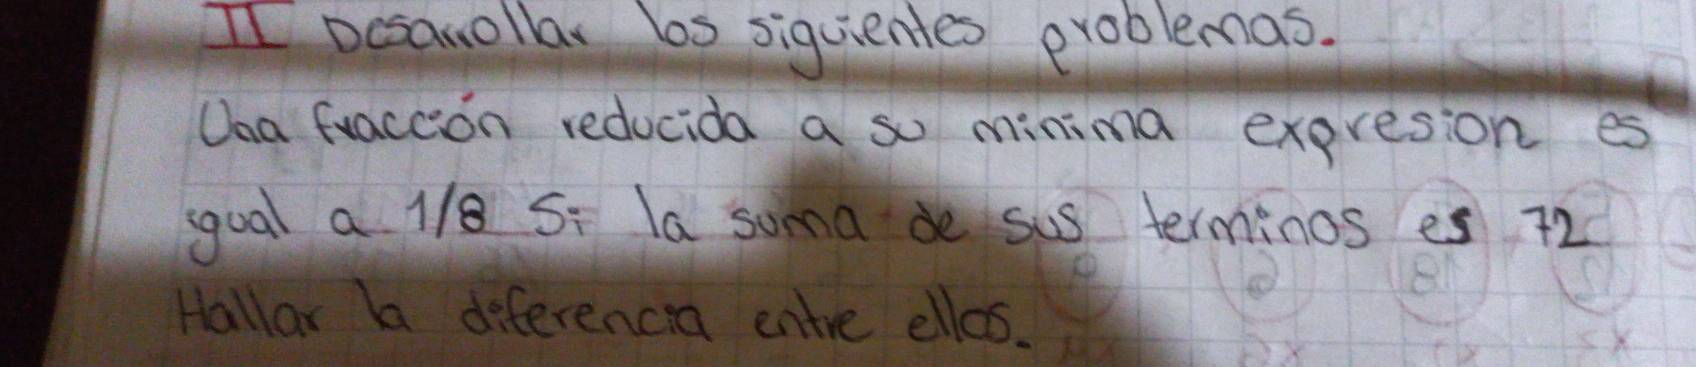 II Desarrollar los siguientes problemas.
Una fracción reducida a su minima expresion es
igual a 1/8 Si la suma de sus terminos es 72
Hallar la diferencia entre ellos.